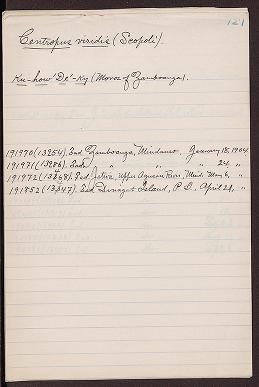 121
Centropus viridis (Scopoli).
Ku-how'De'-Ky (Moros of Zamboanga).
191970 (13254). Zamboanga, Mindanao, January 18, 1904
191971 (13286). " " " 24, "
191972 (13868). Upper Agusan River, Mind. May 6, "
191852 (13347). Dinagat Island, P.I. April 21, "